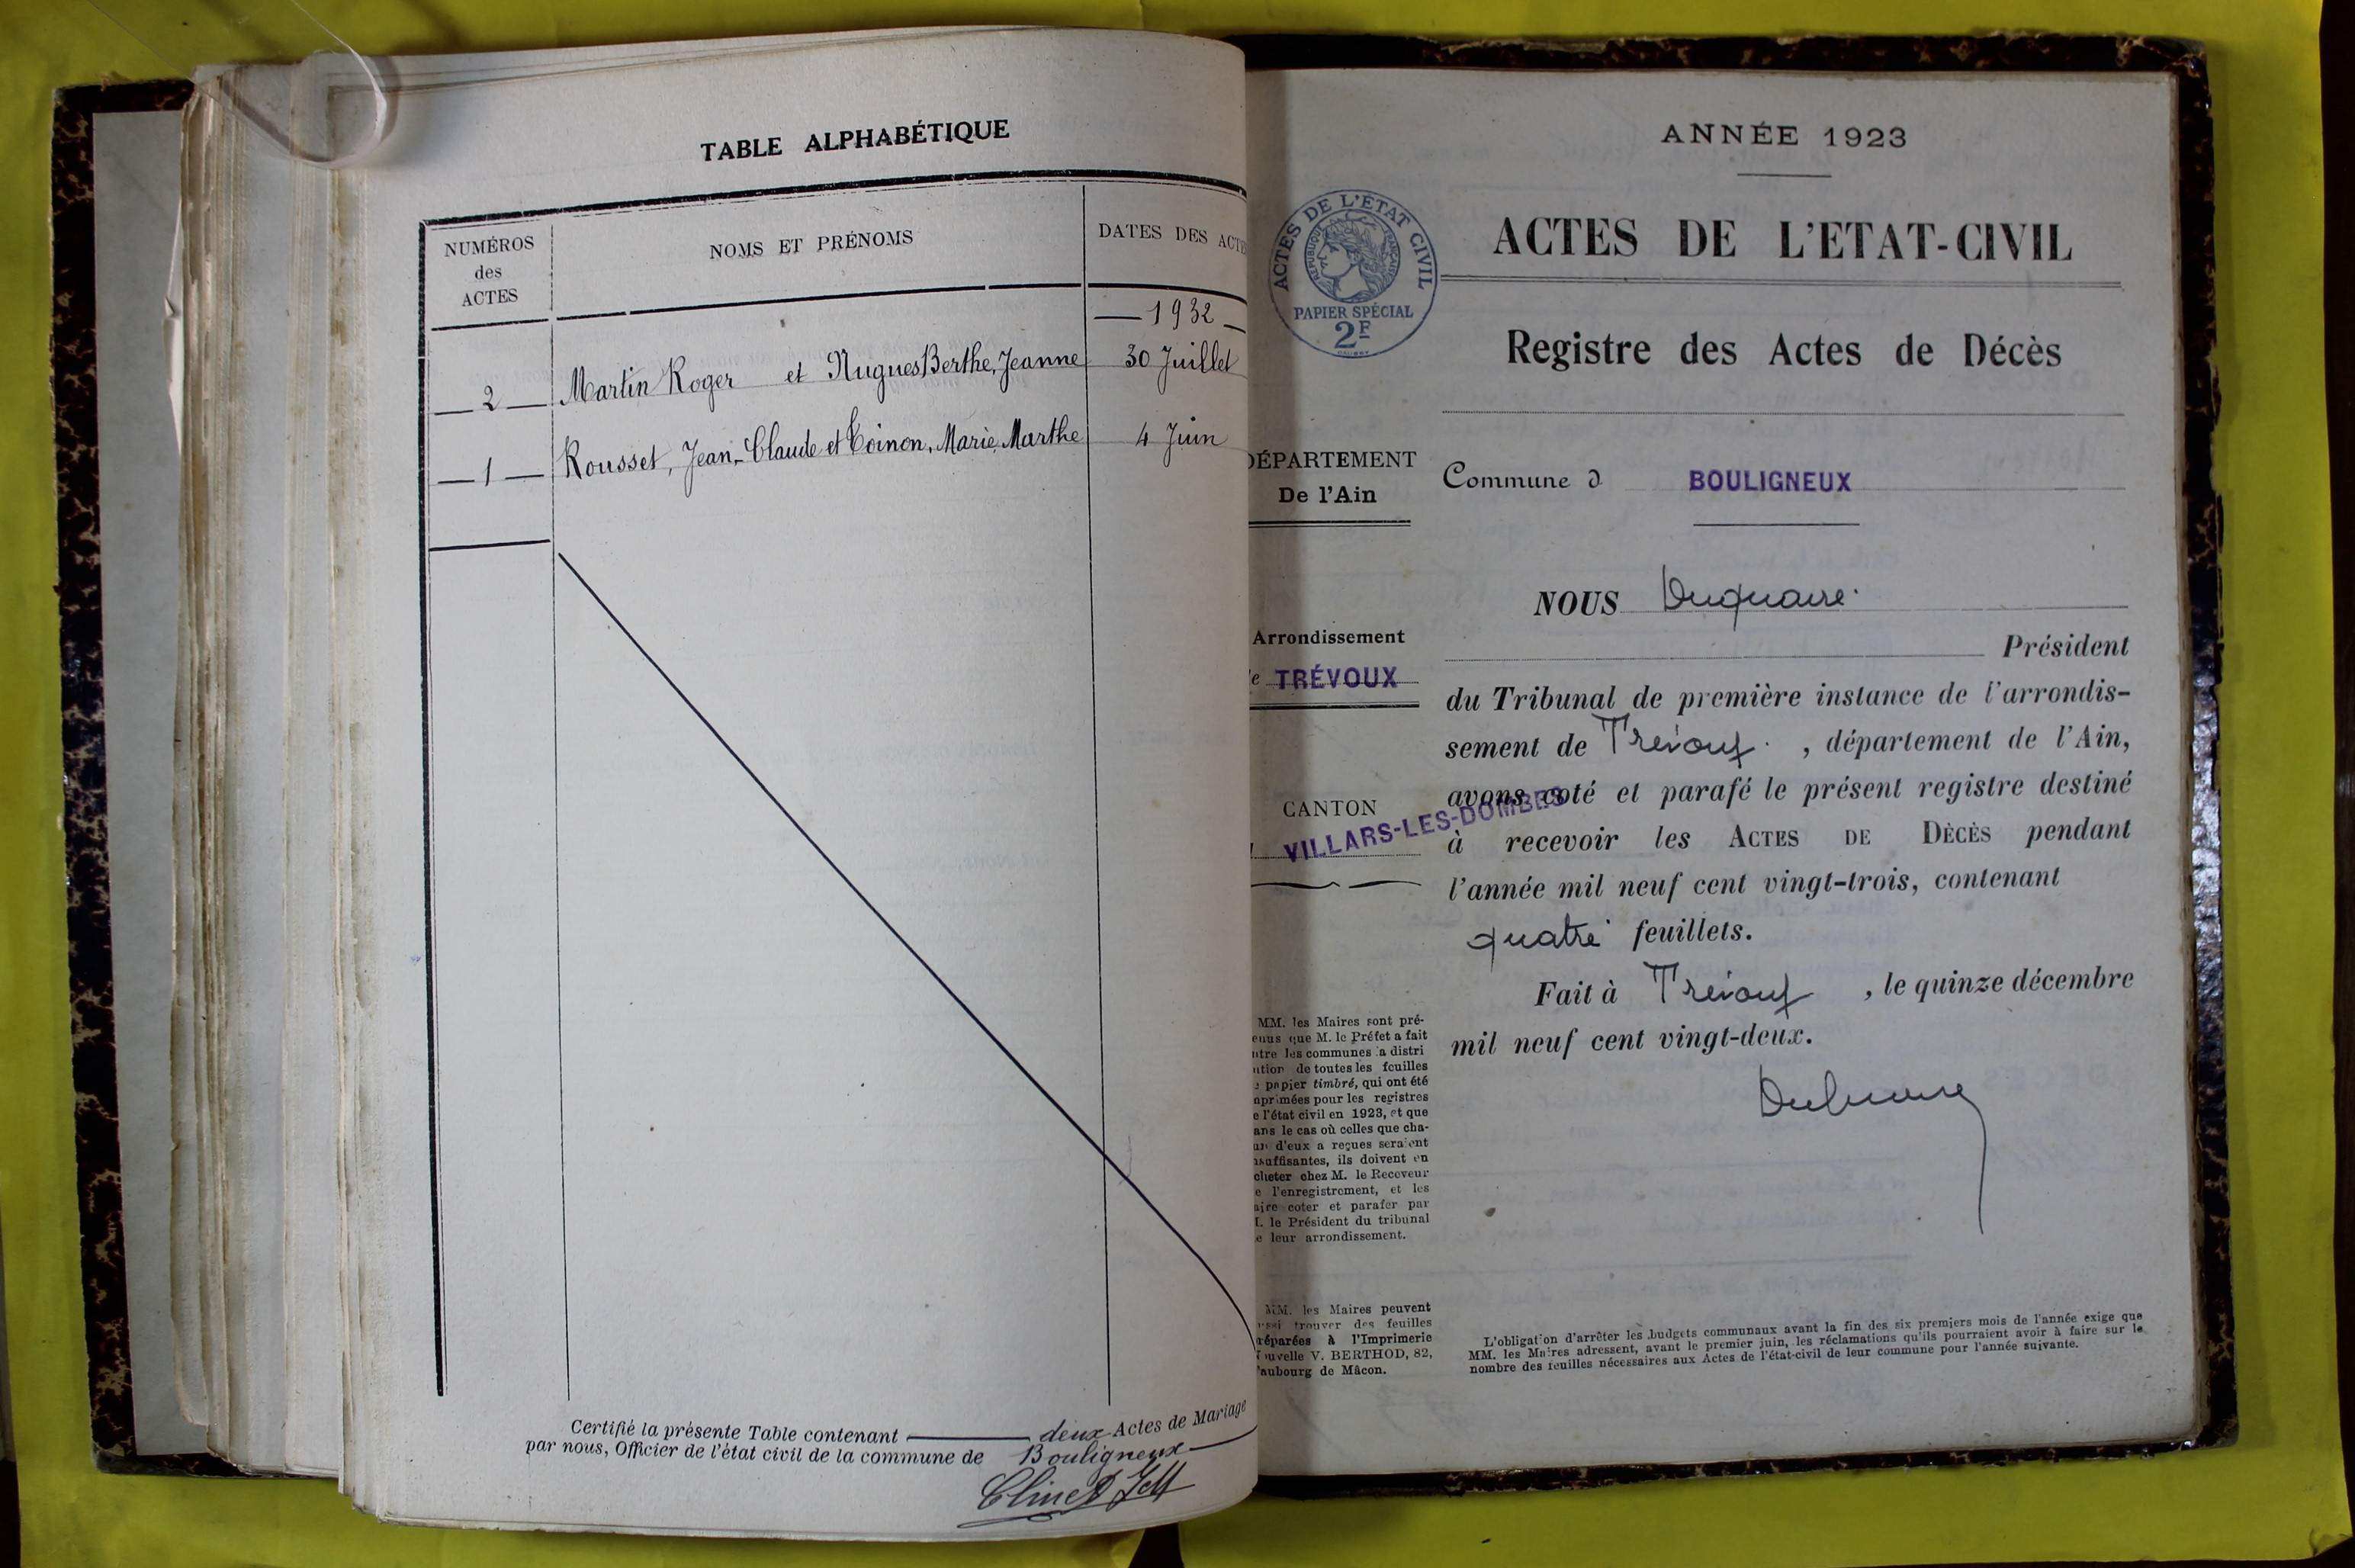 TABLE ALPHABÉTIQUE
NUMÉROS
des
ACTES
NOMS ET PRÉNOMS
DATES DES ACTE
— 1932 —
— 2 — Martin Roger et Nugues Berthe, Jeanne 30 Juillet
— 1 — Rousset, Jean-Claude et Coinon, Marie, Marthe 4 Juin
Certifié la présente Table contenant deux Actes de Mariage
par nous, Officier de l'état civil de la commune de Bouligneux
ANNÉE 1923
ACTES DE L'ÉTAT CIVIL
RÉPUBLIQUE FRANÇAISE
PAPIER SPÉCIAL
2F
ACTES DE L'ETAT-CIVIL
Registre des Actes de Décès
DÉPARTEMENT
De l'Ain
Arrondissement
de TRÉVOUX
CANTON
VILLARS-LES-DOMBES
MM. les Maires sont pré-
enus que M. le Préfet a fait
ntre les communes a distri
ution de toutes les feuilles
e papier timbré, qui ont été
mprimées pour les registres
e l'état civil en 1923, et que
ans le cas où celles que cha-
un d'eux a reçues seraient
nsuffisantes, ils doivent en
cheter chez M. le Receveur
e l'enregistrement, et les
aire coter et parafer par
M. le Président du tribunal
e leur arrondissement.
MM. les Maires peuvent
ussi trouver des feuilles
réparées à l'Imprimerie
Nouvelle V. BERTHOD, 82,
faubourg de Mâcon.
Commune d BOULIGNEUX
NOUS Duquaire
Président
du Tribunal de première instance de l'arrondis-
sement de Trévoux, département de l'Ain,
avons coté et parafé le présent registre destiné
à recevoir les ACTES DE DÉCÈS pendant
l'année mil neuf cent vingt-trois, contenant
quatre feuillets.
Fait à Trévoux, le quinze décembre
mil neuf cent vingt-deux.
L'obligation d'arrêter les budgets communaux avant la fin des six premiers mois de l'année exige que
MM. les Maires adressent, avant le premier juin, les réclamations qu'ils pourraient avoir à faire sur le
nombre des feuilles nécessaires aux Actes de l'état-civil de leur commune pour l'année suivante.